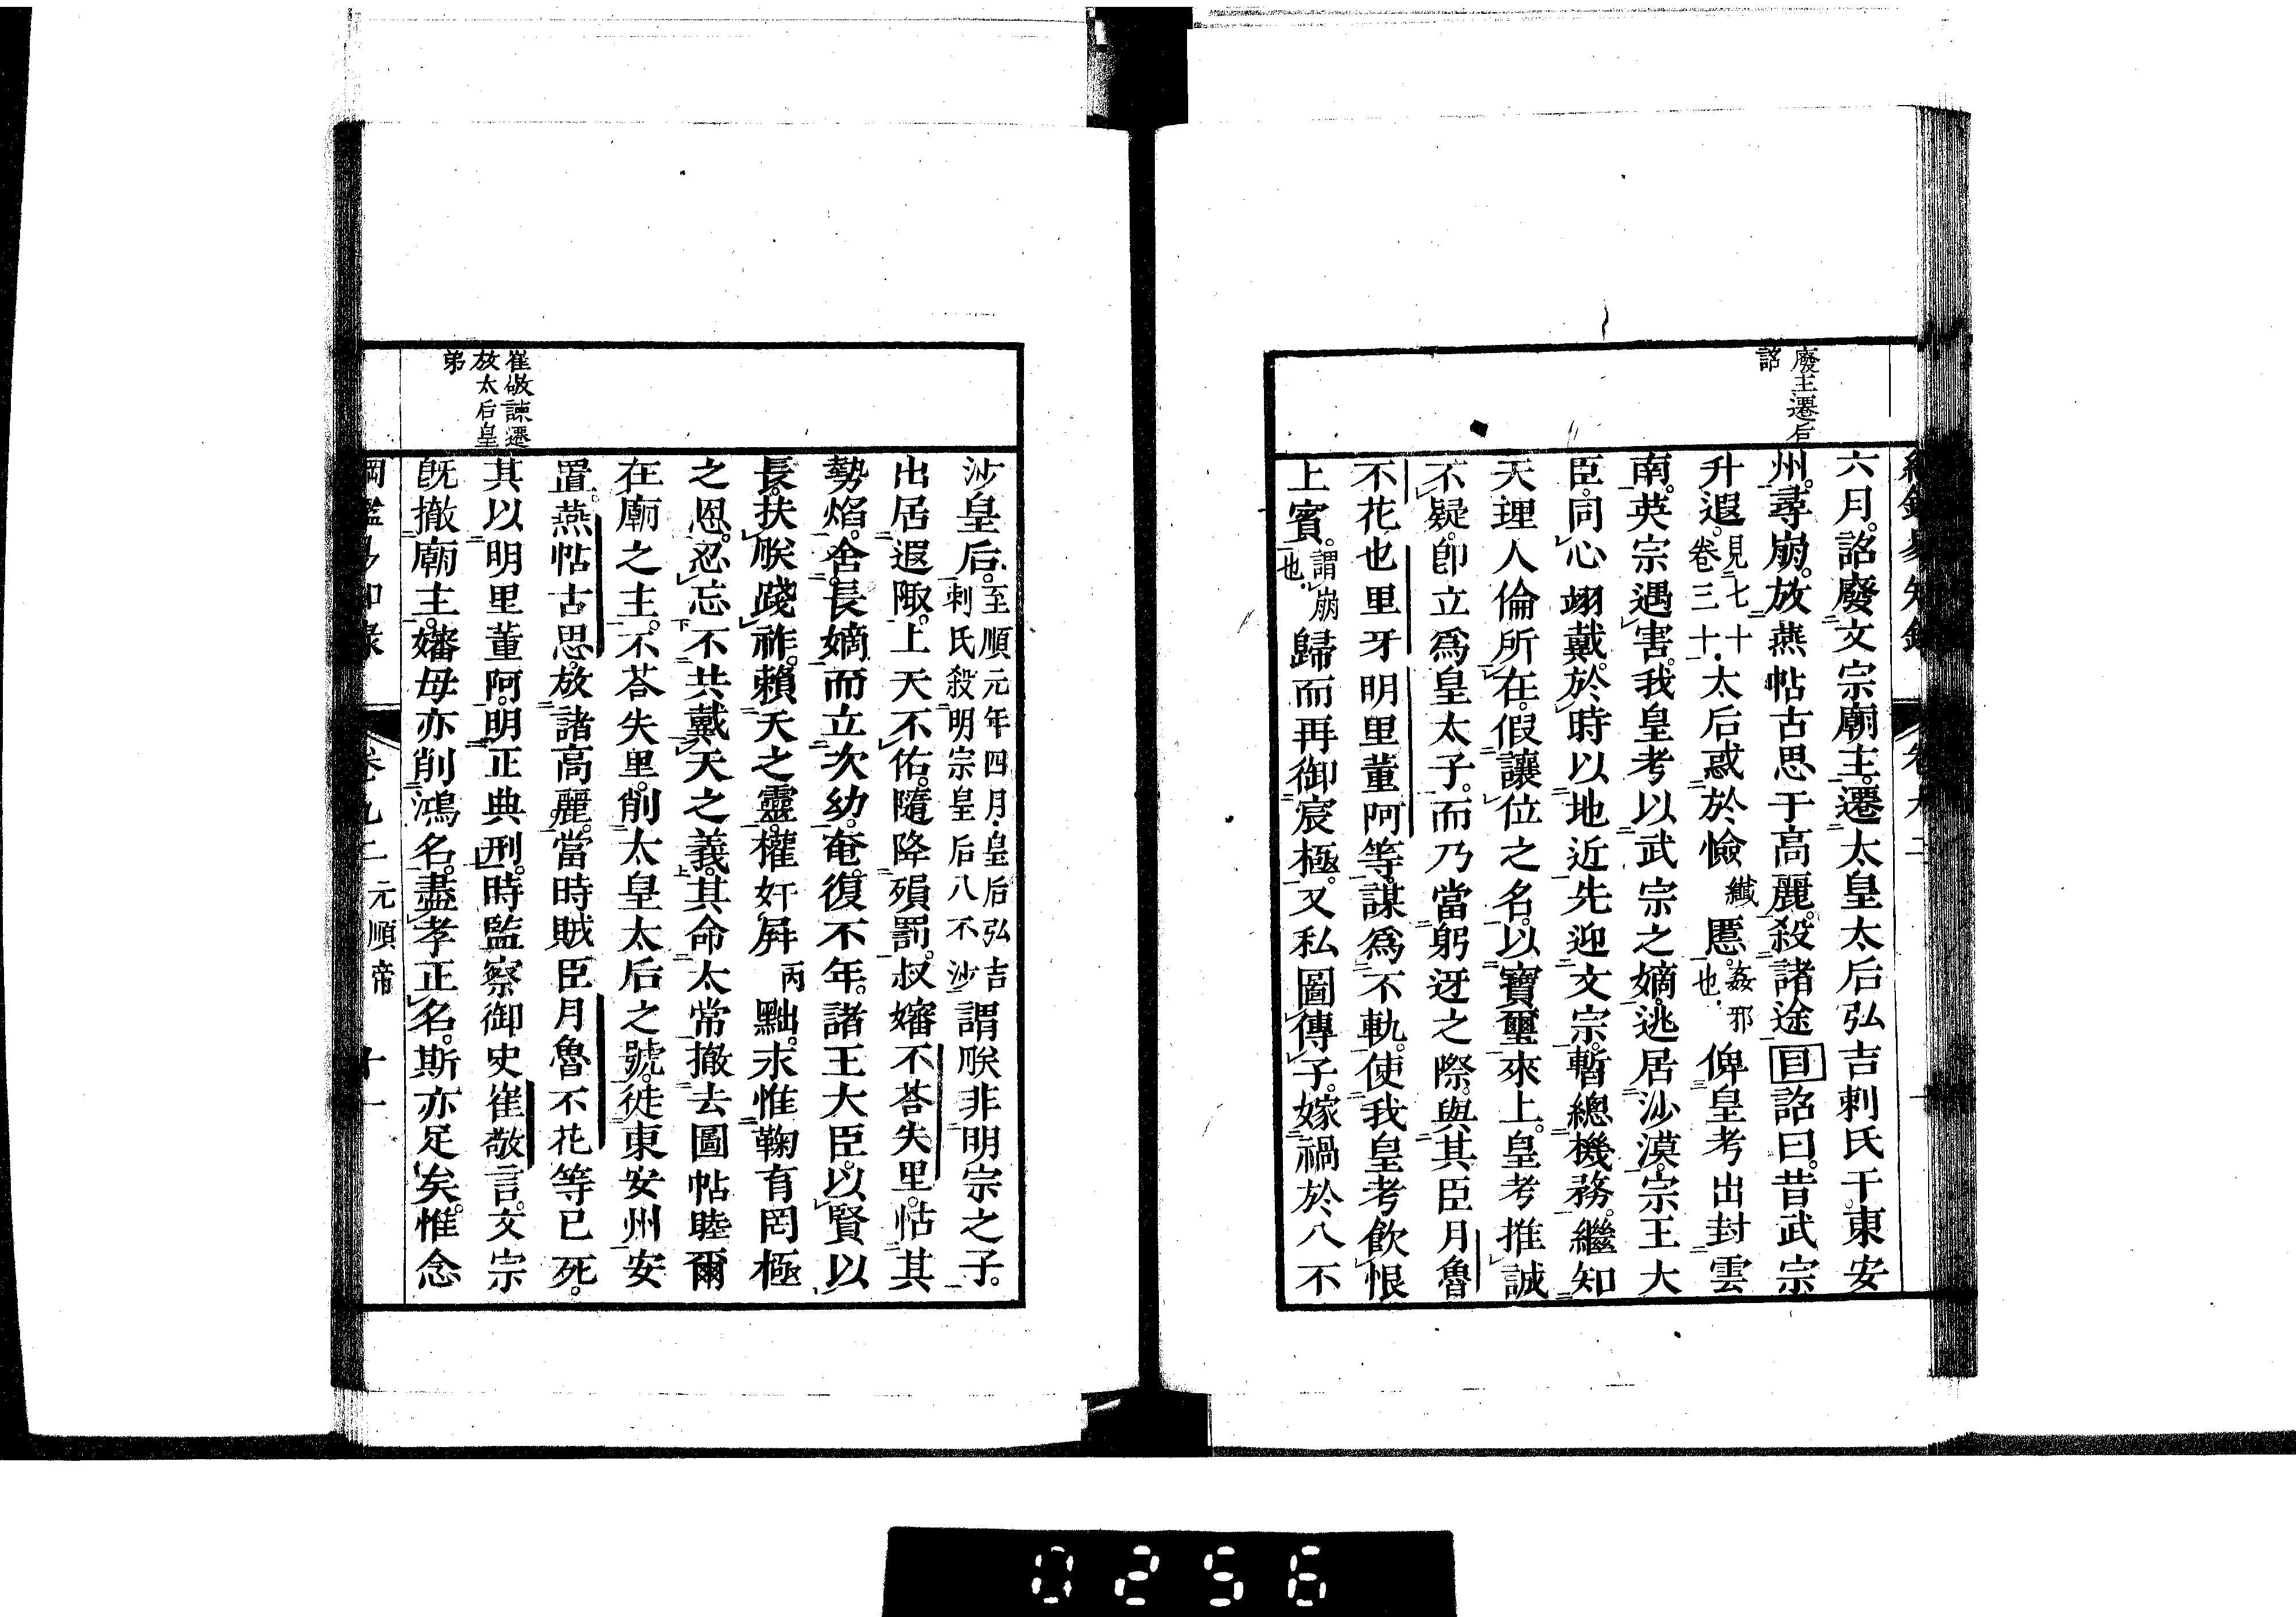 廢主遷后
詔
六月。詔廢文宗廟主。遷太皇太后弘吉剌氏于東安
州。尋崩。放燕帖古思于高麗。殺諸途目詔曰。昔武宗
升遐。見七十卷三十。太后惑於憸纖慝。姦邪也。俾皇考出封雲
南。英宗遇害。我皇考以武宗之嫡。逃居沙漠。宗王大
臣。同心翊戴。於時以地近先迎文宗。暫總機務。繼知
天理人倫所在。假讓位之名。以寶璽來上。皇考推誠
不疑。卽立爲皇太子。而乃當躬迓之際。與其臣月魯
不花也里牙明里董阿等。謀爲不軌。使我皇考飮恨
上賓。謂崩也。歸而再御宸極。又私圖傳子。嫁禍於八不
沙皇后。至順元年四月。皇后弘吉剌氏殺明宗皇后八不沙謂朕非明宗之子。
出居遐陬。上天不佑。隨降殞罰。叔嬸不荅失里。怙其
勢焰。舍長嫡而立次幼。奄復不年。諸王大臣。以賢以
長。扶朕踐祚。賴天之靈。權奸屛丙黜。永惟鞠育罔極
之恩。忍忘不共戴天之義。其命太常撤去圖帖睦爾
在廟之主。不荅失里。削太皇太后之號。徙東安州安
置。燕帖古思。放諸高麗。當時賊臣月魯不花等已死。
其以明里董阿。明正典刑。時監察御史崔敬言。文宗
旣撤廟主。嬸母亦削鴻名。盡孝正名。斯亦足矣。惟念
崔敬諫遷
放太后皇
弟
元順帝 十一
0256